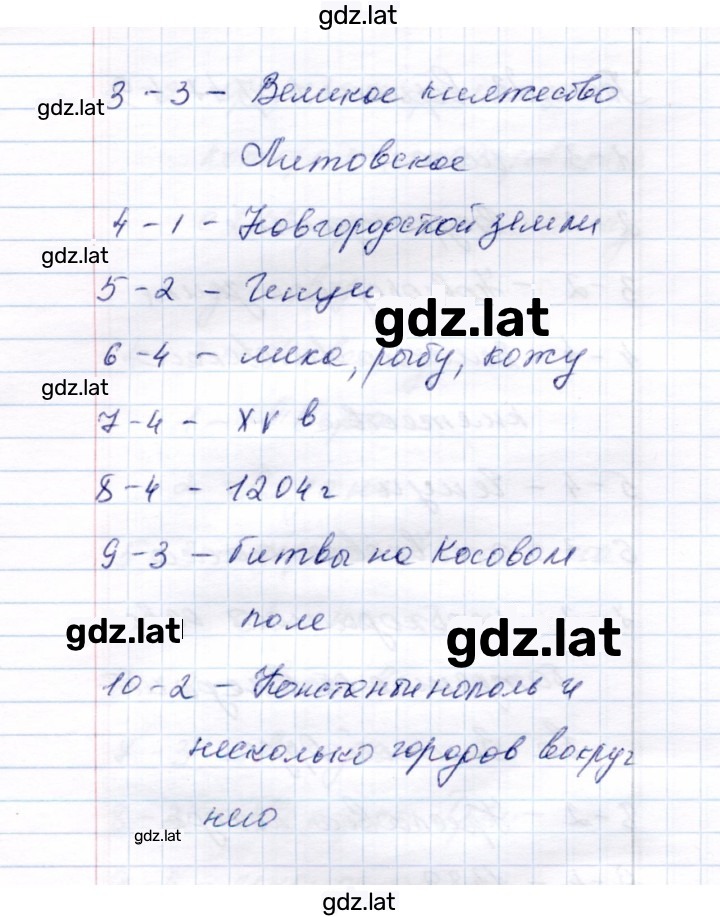 gdz.lat
3 - 3 - Великое княжество
gdz.lat
Литовское
4 - 1 - Новгородской земли
gdz.lat
5 - 2 - Генуи
gdz.lat
6 - 4 - меха, рыбу, кожу
gdz.lat
7 - 4 - XV в
8 - 4 - 1204 г
9 - 3 - битвы на Косовом
gdz.lat
поле
gdz.lat
10 - 2 - Константинополь и
несколько городов вокруг
него
gdz.lat
gdz.lat